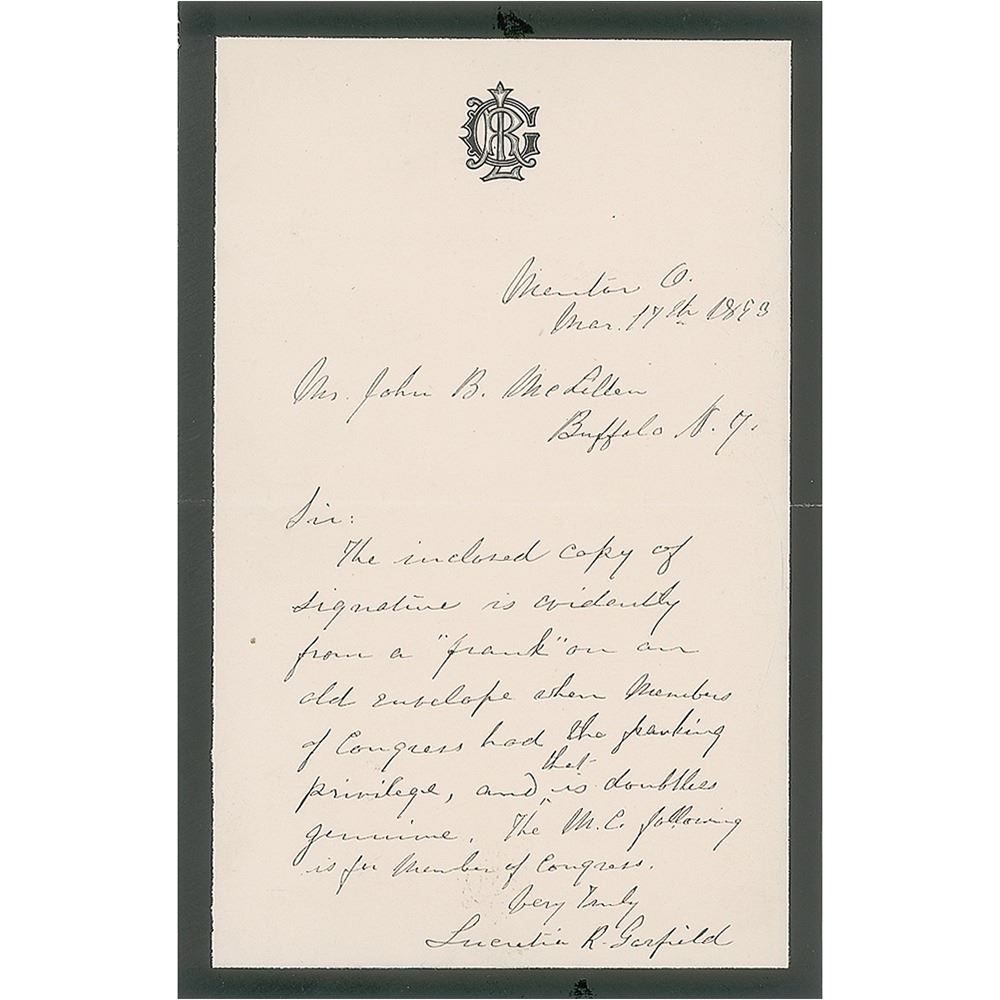 LRG
Mentor O.
Mar. 17th 1893
Mr. John B. McLillen
Buffalo N. Y.
Sir:
The inclosed copy of
signature is evidently
from a "frank" on an
old envelope when Members
of Congress had the franking
privilege, and that is doubtless
genuine. The M.C. following
is for Member of Congress.
Very Truly
Lucretia R. Garfield